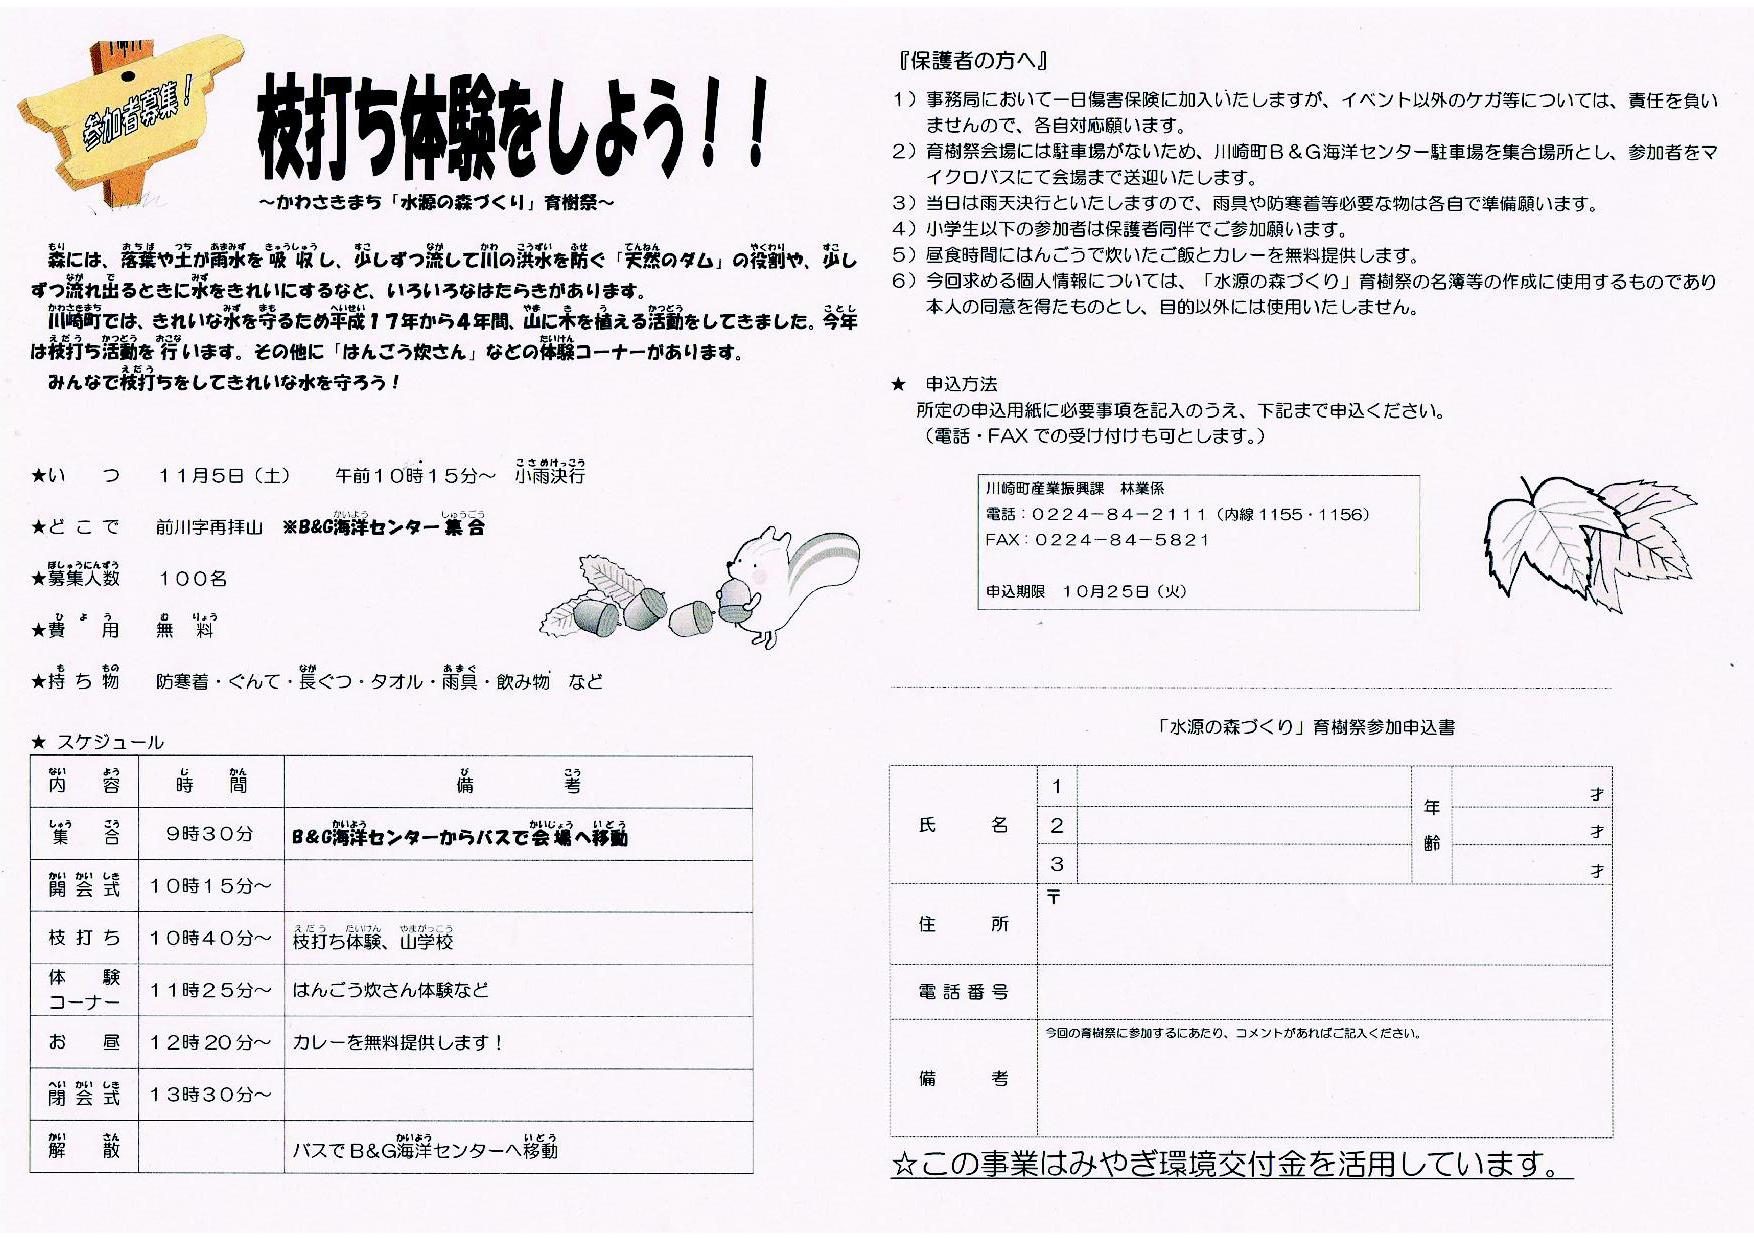 参加者募集！
枝打ち体験をしよう！！
～かわさきまち「水源の森づくり」育樹祭～
森には、落葉や土が雨水を吸収し、少しずつ流して川の洪水を防ぐ「天然のダム」の役割や、少し
ずつ流れ出るときに水をきれいにするなど、いろいろなはたらきがあります。
川崎町では、きれいな水を守るため平成１７年から４年間、山に木を植える活動をしてきました。今年
は枝打ち活動を行います。その他に「はんごう炊さん」などの体験コーナーがあります。
みんなで枝打ちをしてきれいな水を守ろう！
★い　つ　１１月５日（土）　午前１０時１５分～　小雨決行
★どこで　前川字再拝山　※B&G海洋センター集合
★募集人数　１００名
★費用　無料
★持ち物　防寒着・ぐんて・長ぐつ・タオル・雨具・飲み物　など
★ スケジュール
内容　時間　備考
集合　９時３０分　B&G海洋センターからバスで会場へ移動
開会式　１０時１５分～
枝打ち　１０時４０分～　枝打ち体験、山学校
体験コーナー　１１時２５分～　はんごう炊さん体験など
お昼　１２時２０分～　カレーを無料提供します！
閉会式　１３時３０分～
解散　バスでB&G海洋センターへ移動
『保護者の方へ』
１）事務局において一日傷害保険に加入いたしますが、イベント以外のケガ等については、責任を負い
ませんので、各自対応願います。
２）育樹祭会場には駐車場がないため、川崎町Ｂ＆Ｇ海洋センター駐車場を集合場所とし、参加者をマ
イクロバスにて会場まで送迎いたします。
３）当日は雨天決行といたしますので、雨具や防寒着等必要な物は各自で準備願います。
４）小学生以下の参加者は保護者同伴でご参加願います。
５）昼食時間にはんごうで炊いたご飯とカレーを無料提供します。
６）今回求める個人情報については、「水源の森づくり」育樹祭の名簿等の作成に使用するものであり
本人の同意を得たものとし、目的以外には使用いたしません。
★　申込方法
所定の申込用紙に必要事項を記入のうえ、下記まで申込ください。
（電話・FAXでの受け付けも可とします。）
川崎町産業振興課　林業係
電話：０２２４－８４－２１１１（内線1155・1156）
FAX：０２２４－８４－５８２１
申込期限　１０月２５日（火）
「水源の森づくり」育樹祭参加申込書
氏名　1　年齢　才
2　才
3　才
住所　〒
電話番号
備考　今回の育樹祭に参加するにあたり、コメントがあればご記入ください。
☆この事業はみやぎ環境交付金を活用しています。